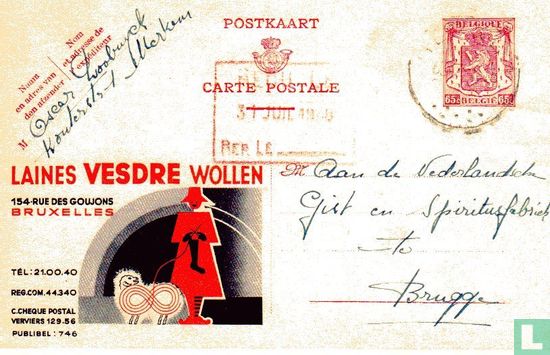 POSTKAART
CARTE POSTALE
BELGIQUE
65c BELGIE 65c
Nom
et adresse de
l'expéditeur
Naam
en adres van
den afzender
M Oscar
Wouterstr 1 Merkem
31 JUIL 19
LAINES VESDRE WOLLEN
154-RUE DES GOUJONS
BRUXELLES
TÉL: 21.00.40
REG.COM. 44.340
C.CHEQUE POSTAL
VERVIERS 129.56
PUBLIBEL: 746
M Aan de Nederlandsche
Gist en Spiritusfabriek
te
Brugge
catawiki